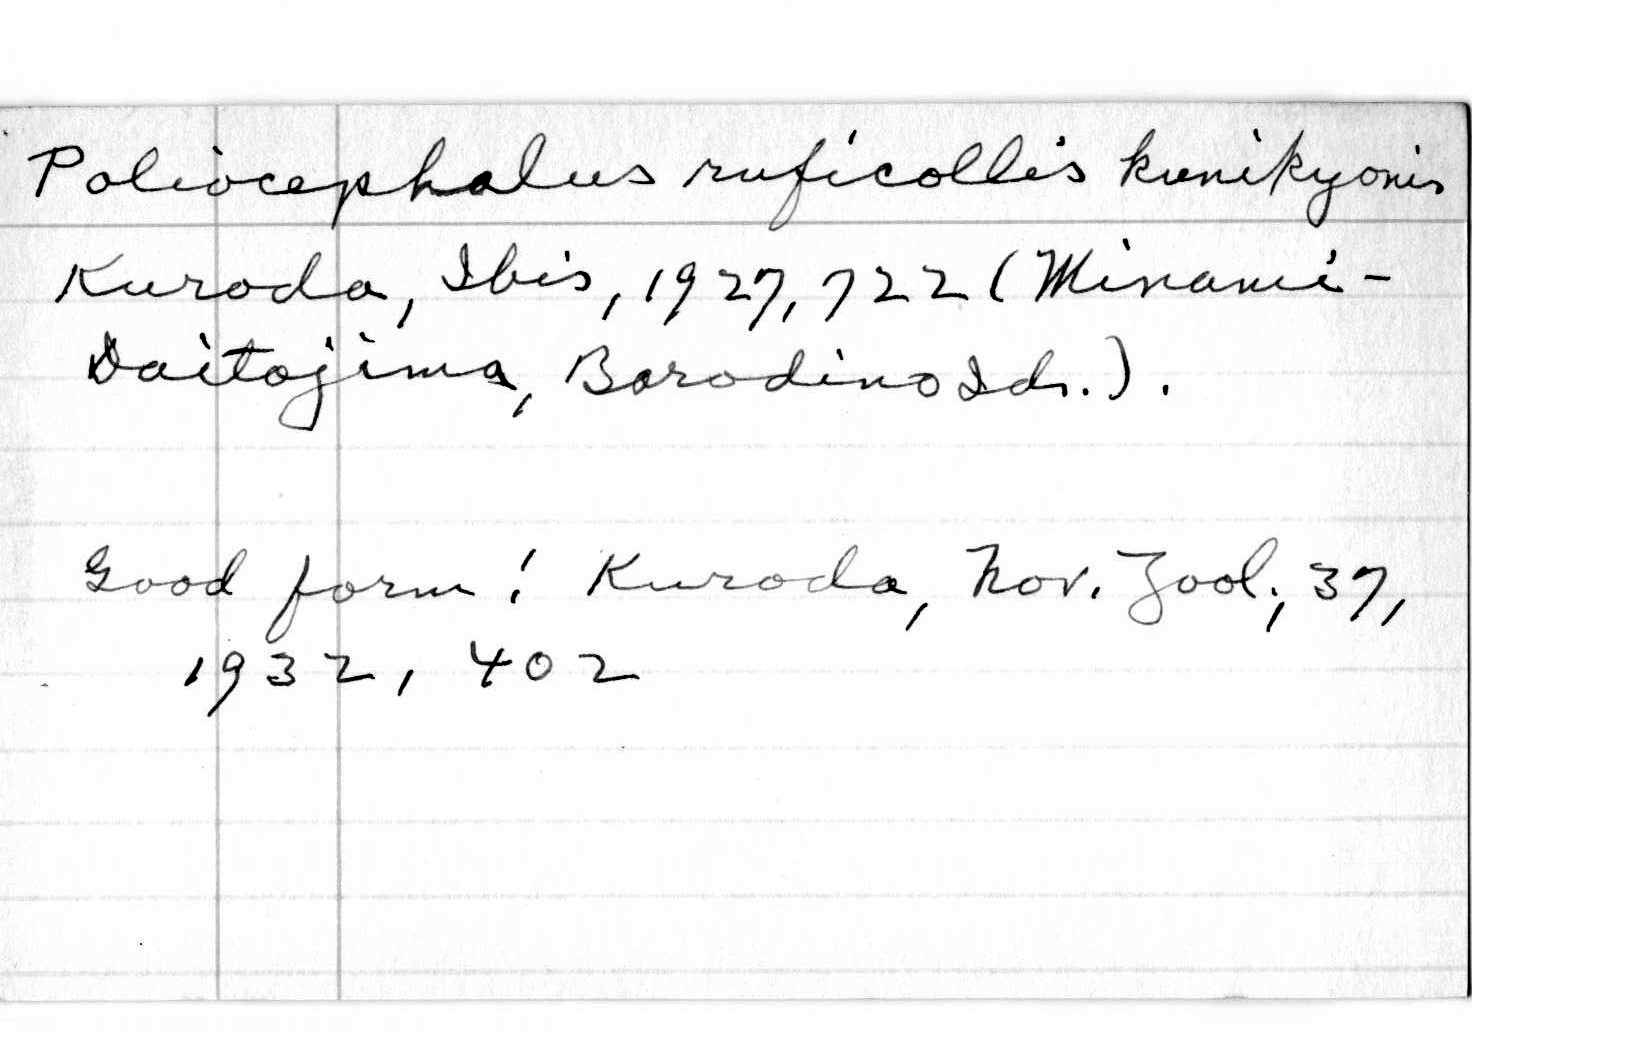 Poliocephalus ruficollis kunikyonis
Kuroda, Ibis, 1927, 722 (Minami-
Daitojima, Borodino Ids.).
Good form! Kuroda, Nov. Zool., 37,
1932, 402